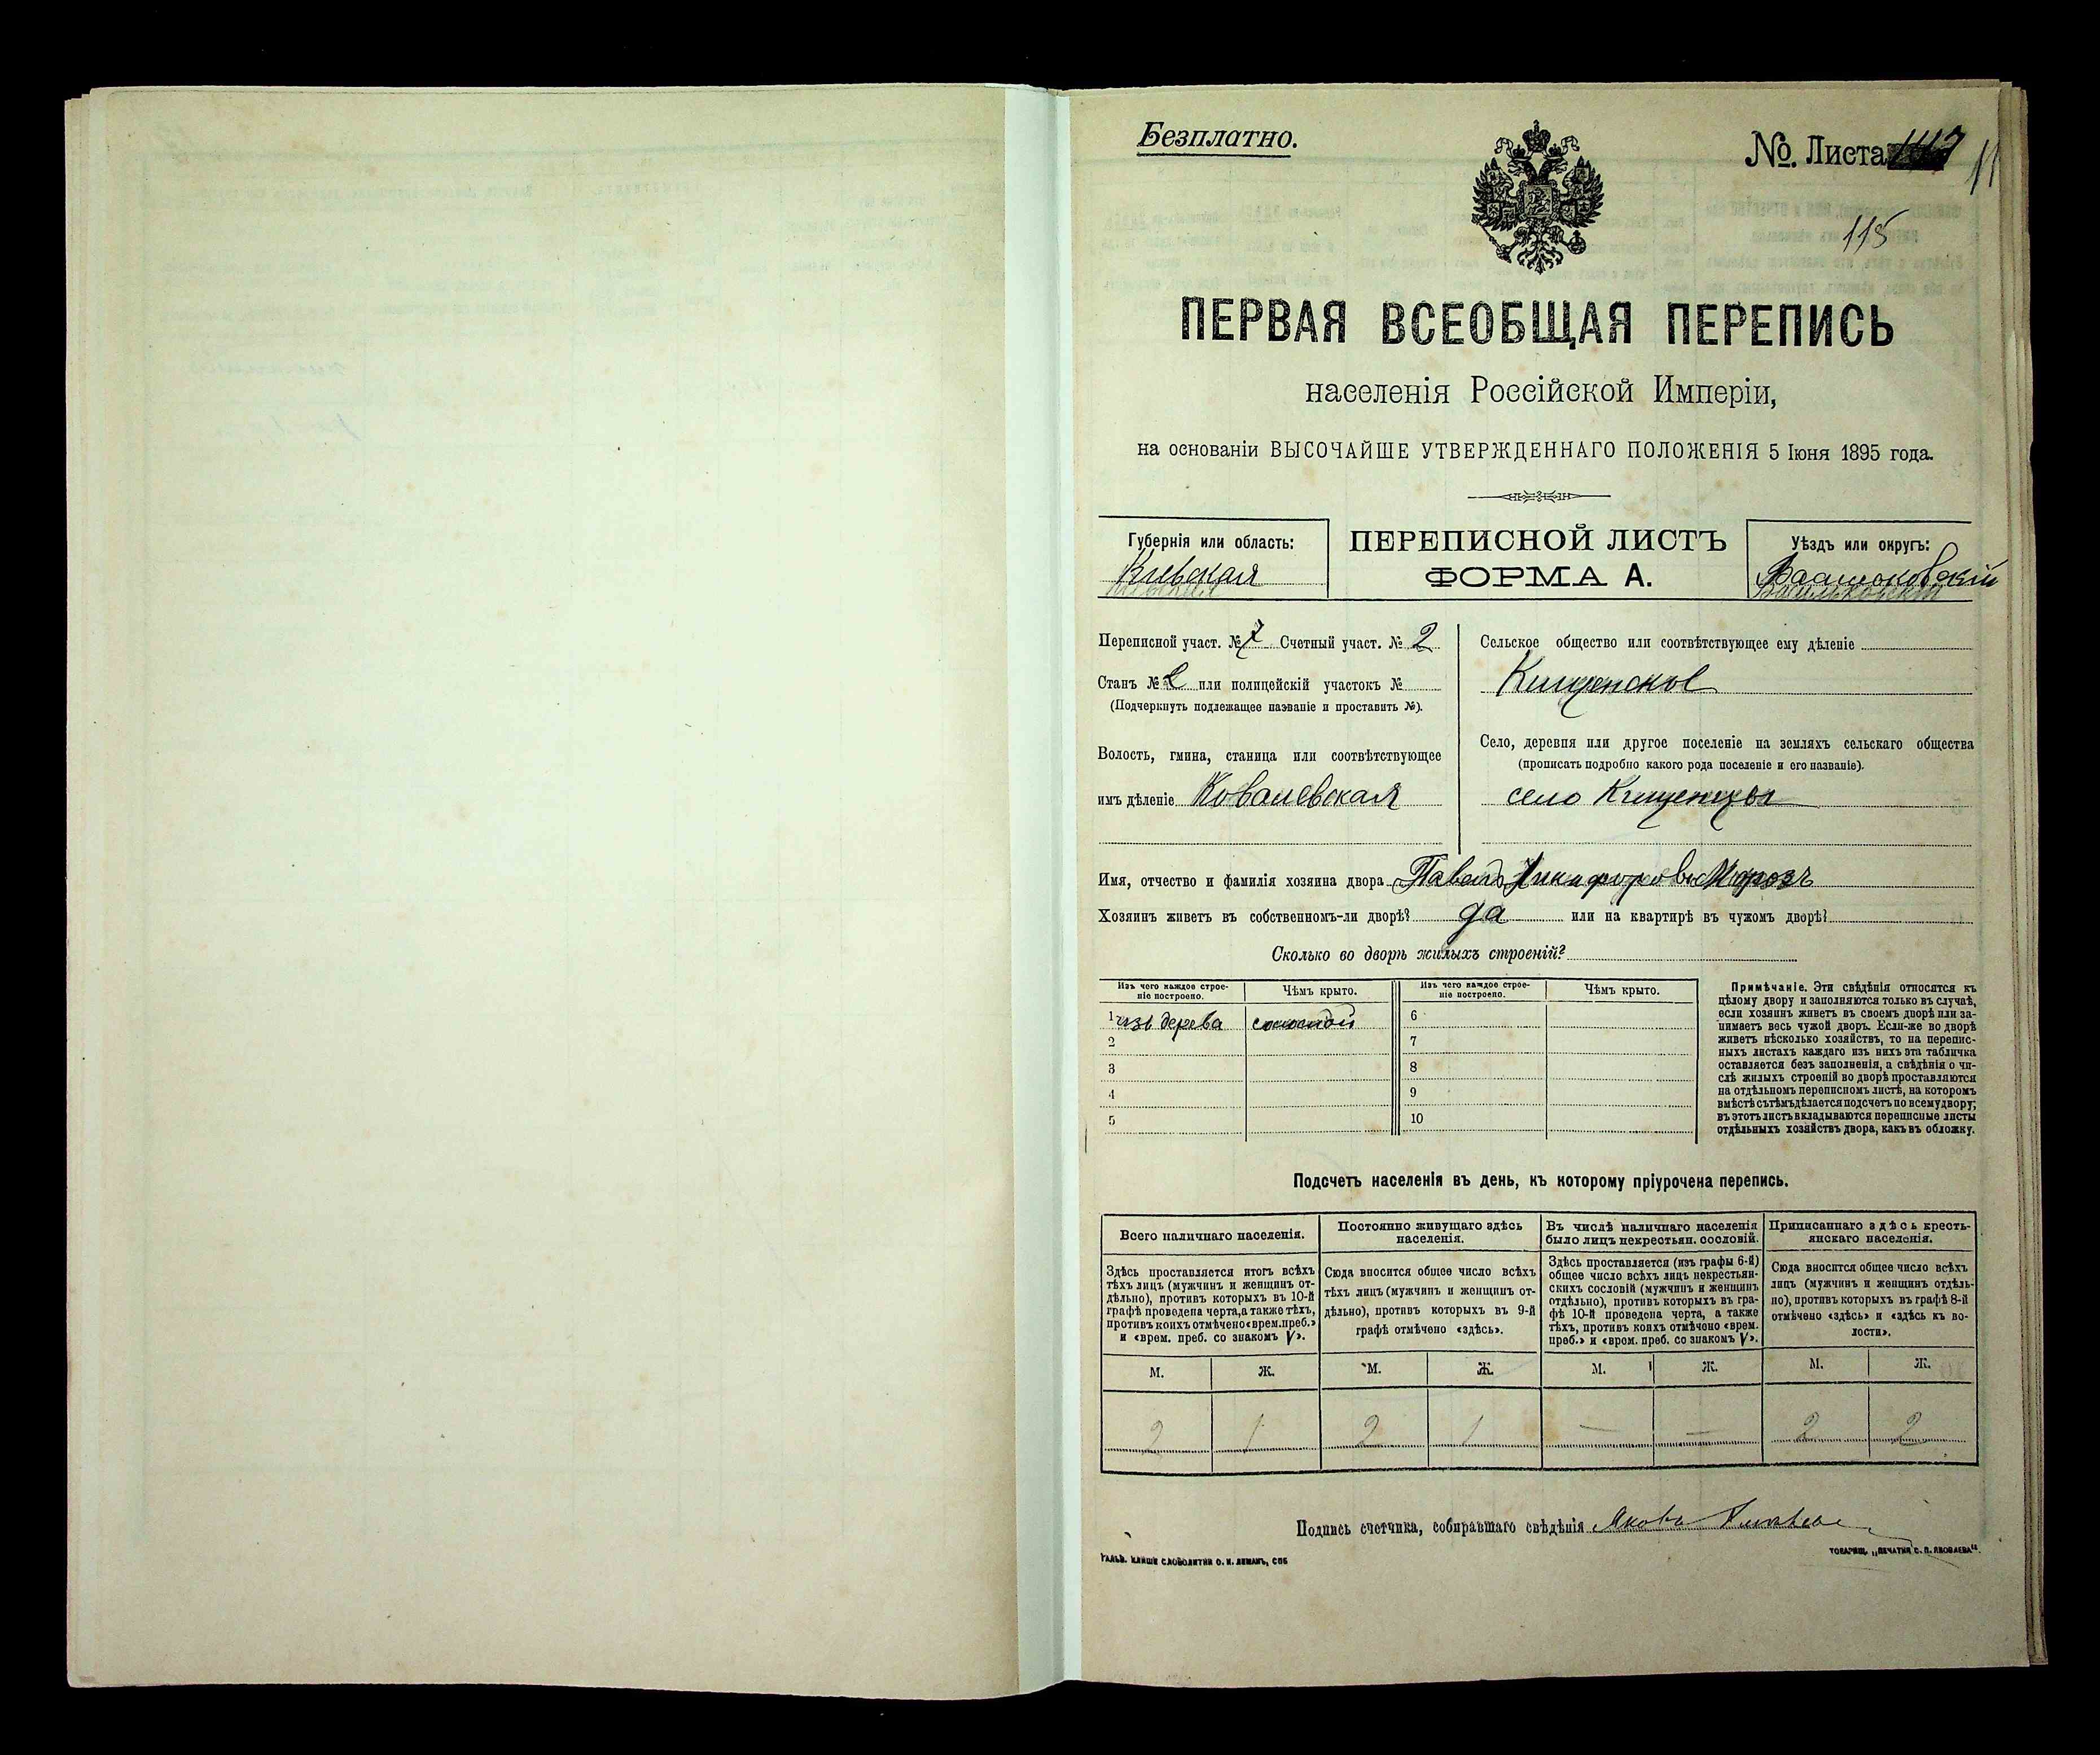 Безплатно.
№. Листа
115
ПЕРВАЯ ВСЕОБЩАЯ ПЕРЕПИСЬ
населенія Россійской Имперіи,
на основаніи ВЫСОЧАЙШЕ УТВЕРЖДЕННАГО ПОЛОЖЕНІЯ 5 Іюня 1895 года.
Губернія или область:
Кіевская
ПЕРЕПИСНОЙ ЛИСТЪ
ФОРМА А.
Уѣздъ или округъ:
Васильковскій
Переписной участ. № 7 Счетный участ. № 2
Станъ № 2 или полицейскій участокъ №
(Подчеркнуть подлежащее названіе и проставить №).
Волость, гмина, станица или соотвѣтствующее
имъ дѣленіе Ковалевская
Сельское общество или соотвѣтствующее ему дѣленіе
Кищенское
Село, деревня или другое поселеніе на земляхъ сельскаго общества
(прописать подробно какого рода поселеніе и его названіе).
село Кищенцы
Имя, отчество и фамилія хозяина двора Никифоровъ Морозъ
Хозяинъ живетъ въ собственномъ-ли дворѣ? да или на квартирѣ въ чужомъ дворѣ?
Сколько во дворѣ жилыхъ строеній?
Изъ чего каждое строе-
ніе построено.
Чѣмъ крыто.
Изъ чего каждое строе-
ніе построено.
Чѣмъ крыто.
1 изъ дерева соломой 6
2 7
3 8
4 9
5 10
Примѣчаніе. Эти свѣдѣнія относятся къ
цѣлому двору и заполняются только въ случаѣ,
если хозяинъ живетъ въ своемъ дворѣ или за-
нимаетъ весь чужой дворъ. Если-же во дворѣ
живетъ нѣсколько хозяйствъ, то на перепис-
ныхъ листахъ каждаго изъ нихъ эта табличка
оставляется безъ заполненія, а свѣдѣнія о чи-
слѣ жилыхъ строеній во дворѣ проставляются
на отдѣльномъ переписномъ листѣ, на которомъ
вмѣстѣ съ тѣмъ дѣлается подсчетъ по всему двору;
въ этотъ листъ вкладываются переписные листы
отдѣльныхъ хозяйствъ двора, какъ въ обложку.
Подсчетъ населенія въ день, къ которому пріурочена перепись.
Всего наличнаго населенія.
Здѣсь проставляется итогъ всѣхъ
тѣхъ лицъ (мужчинъ и женщинъ от-
дѣльно), противъ которыхъ въ 10-й
графѣ проведена черта, а также тѣхъ,
противъ коихъ отмѣчено «врем. преб.»
и «врем. преб. со знакомъ V».
Постоянно живущаго здѣсь
населенія.
Сюда вносится общее число всѣхъ
тѣхъ лицъ (мужчинъ и женщинъ от-
дѣльно), противъ которыхъ въ 9-й
графѣ отмѣчено «здѣсь».
Въ числѣ наличнаго населенія
было лицъ некрестьян. сословій.
Здѣсь проставляется (изъ графы 6-й)
общее число всѣхъ лицъ некрестьян-
скихъ сословій (мужчинъ и женщинъ
отдѣльно), противъ которыхъ въ гра-
фѣ 10-й проведена черта, а также
тѣхъ, противъ коихъ отмѣчено «врем.
преб.» и «врем. преб. со знакомъ V».
Приписаннаго здѣсь кресть-
янскаго населенія.
Сюда вносится общее число всѣхъ
лицъ (мужчинъ и женщинъ отдѣль-
но), противъ которыхъ въ графѣ 8-й
отмѣчено «здѣсь» и «здѣсь къ во-
лости».
М. Ж. М. Ж. М. Ж. М. Ж.
2 1 2 1 — — 2 2
Подпись счетчика, собиравшаго свѣдѣнія Яковъ
ГАЛЬВ. КЛИШЕ СЛОВОЛИТНИ О. И. ЛЕМАНЪ, СПБ
ТОВАРИЩ. „ПЕЧАТНЯ С. П. ЯКОВЛЕВА".